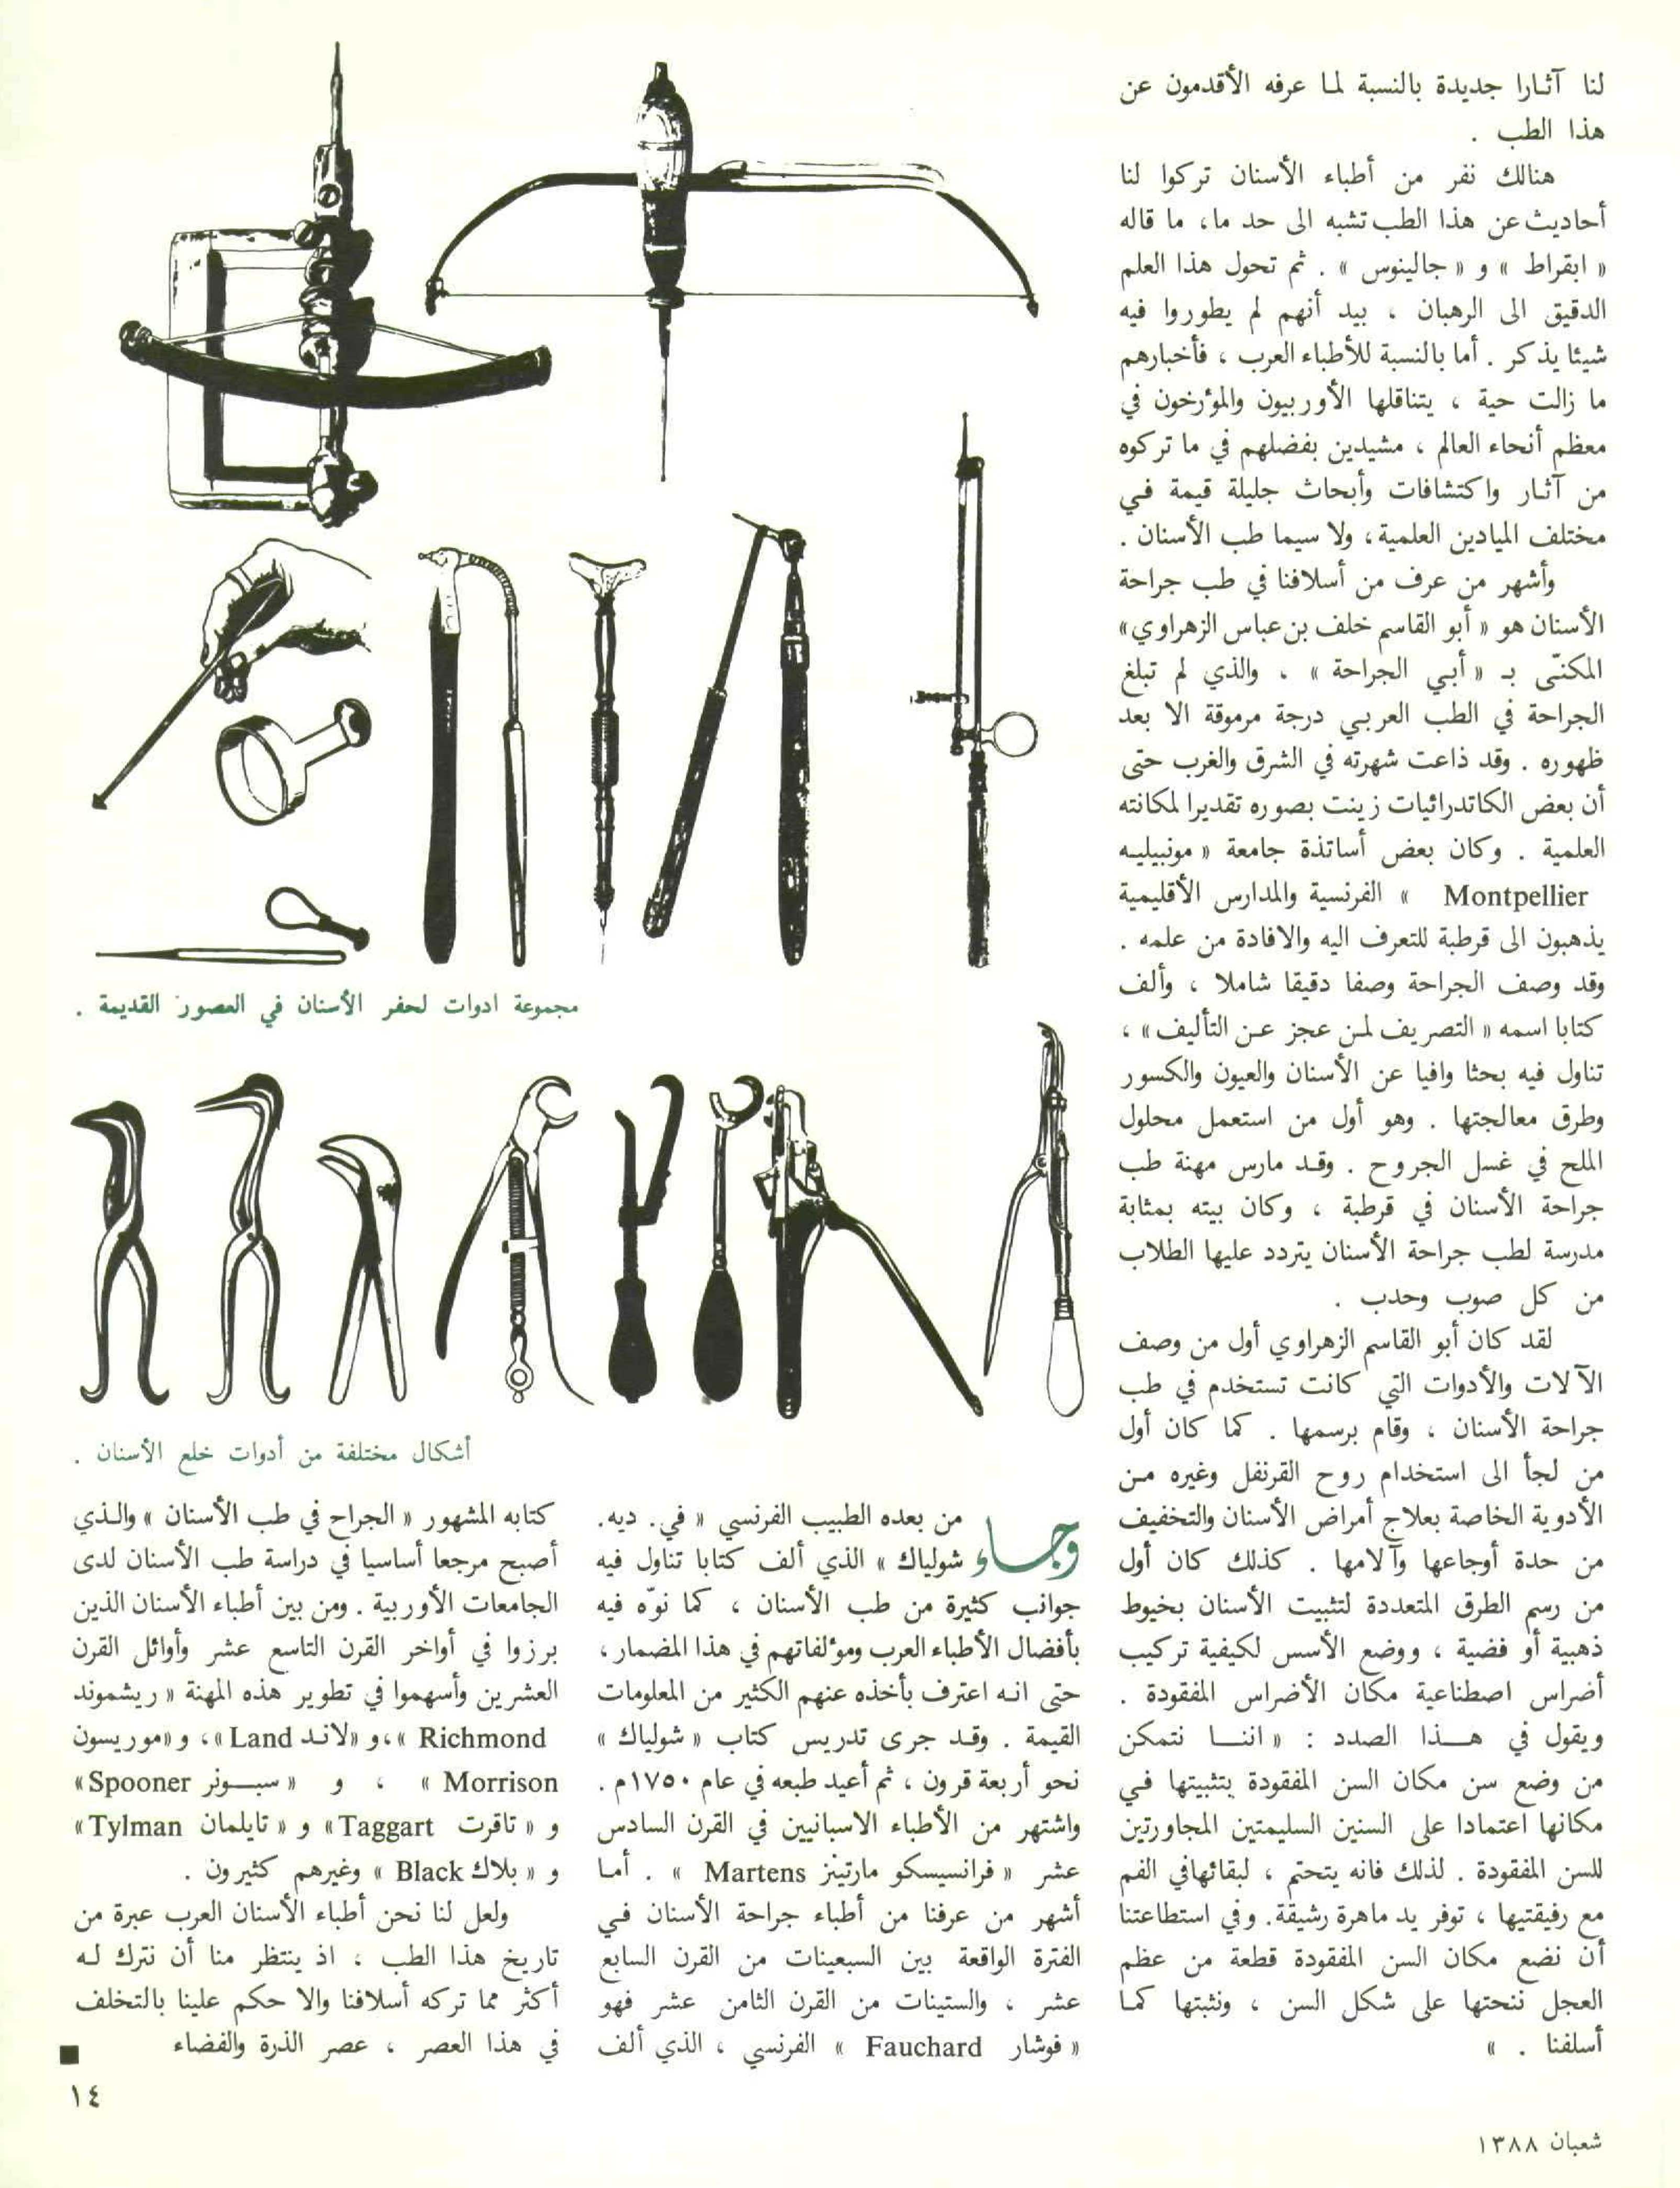 لنا آثارا جديدة بالنسبة لما عرفه الأقدمون عن
هذا الطب .
هنالك نفر من أطباء الأسنان تركوا لنا
أحاديث عن هذا الطب تشبه الى حد ما، ما قاله
« ابقراط » و « جالينوس » . ثم تحول هذا العلم
الدقيق الى الرهبان ، بيد أنهم لم يطوروا فيه
شيئا يذكر . أما بالنسبة للأطباء العرب ، فأخبارهم
ما زالت حية ، يتناقلها الأوربيون والمؤرخون في
معظم أنحاء العالم ، مشيدين بفضلهم في ما تركوه
من آثار واكتشافات وأبحاث جليلة قيمة في
مختلف الميادين العلمية، ولا سيما طب الأسنان .
وأشهر من عرف من أسلافنا في طب جراحة
الأسنان هو « أبو القاسم خلف بن عباس الزهراوي»
المكنّى بـ « أبي الجراحة » ، والذي لم تبلغ
الجراحة في الطب العربي درجة مرموقة الا بعد
ظهوره . وقد ذاعت شهرته في الشرق والغرب حتى
أن بعض الكاتدرائيات زينت بصوره تقديرا لمكانته
العلمية . وكان بعض أساتذة جامعة « مونبيليه
Montpellier » الفرنسية والمدارس الأقليمية
يذهبون الى قرطبة للتعرف اليه والافادة من علمه .
وقد وصف الجراحة وصفا دقيقا شاملا ، وألف
كتابا اسمه « التصريف لمن عجز عن التأليف » ،
تناول فيه بحثا وافيا عن الأسنان والعيون والكسور
وطرق معالجتها . وهو أول من استعمل محلول
الملح في غسل الجروح . وقد مارس مهنة طب
جراحة الأسنان في قرطبة ، وكان بيته بمثابة
مدرسة لطب جراحة الأسنان يتردد عليها الطلاب
من كل صوب وحدب .
لقد كان أبو القاسم الزهراوي أول من وصف
الآلات والأدوات التي كانت تستخدم في طب
جراحة الأسنان ، وقام برسمها . كما كان أول
من لجأ الى استخدام روح القرنفل وغيره من
الأدوية الخاصة بعلاج أمراض الأسنان والتخفيف
من حدة أوجاعها وآلامها . كذلك كان أول
من رسم الطرق المتعددة لتثبيت الأسنان بخيوط
ذهبية أو فضية ، ووضع الأسس لكيفية تركيب
أضراس اصطناعية مكان الأضراس المفقودة .
ويقول في هـذا الصدد : « اننـا نتمكن
من وضع سن مكان السن المفقودة بتثبيتها في
مكانها اعتمادا على السنين السليمتين المجاورتين
للسن المفقودة . لذلك فانه يتحتم ، لبقائها في الفم
مع رفيقتيها ، توفر يد ماهرة رشيقة. وفي استطاعتنا
أن نضع مكان السن المفقودة قطعة من عظم
العجل ننحتها على شكل السن ، ونثبتها كما
أسلفنا . »
مجموعة ادوات لحفر الأسنان في العصور القديمة .
أشكال مختلفة من أدوات خلع الأسنان .
وجاء من بعده الطبيب الفرنسي « في. ديه.
شولياك » الذي ألف كتابا تناول فيه
جوانب كثيرة من طب الأسنان ، كما نوّه فيه
بأفضال الأطباء العرب ومؤلفاتهم في هذا المضمار،
حتى انه اعترف بأخذه عنهم الكثير من المعلومات
القيمة . وقد جرى تدريس كتاب « شولياك »
نحو أربعة قرون ، ثم أعيد طبعه في عام ١٧٥٠م .
واشتهر من الأطباء الاسبانيين في القرن السادس
عشر « فرانسيسكو مارتينز Martens » . أما
أشهر من عرفنا من أطباء جراحة الأسنان في
الفترة الواقعة بين السبعينات من القرن السابع
عشر ، والستينات من القرن الثامن عشر فهو
« فوشار Fauchard » الفرنسي ، الذي ألف
كتابه المشهور « الجراح في طب الأسنان » والذي
أصبح مرجعا أساسيا في دراسة طب الأسنان لدى
الجامعات الأوربية . ومن بين أطباء الأسنان الذين
برزوا في أواخر القرن التاسع عشر وأوائل القرن
العشرين وأسهموا في تطوير هذه المهنة « ريشموند
Richmond »، و «لاند Land »، و «موريسون
Morrison » ، و « سبـونر Spooner»
و « تاقرت Taggart» و « تايلمان Tylman»
و « بلاك Black » وغيرهم كثيرون .
ولعل لنا نحن أطباء الأسنان العرب عبرة من
تاريخ هذا الطب ، اذ ينتظر منا أن نترك له
أكثر مما تركه أسلافنا والا حكم علينا بالتخلف
في هذا العصر ، عصر الذرة والفضاء ■
١٤
شعبان ١٣٨٨